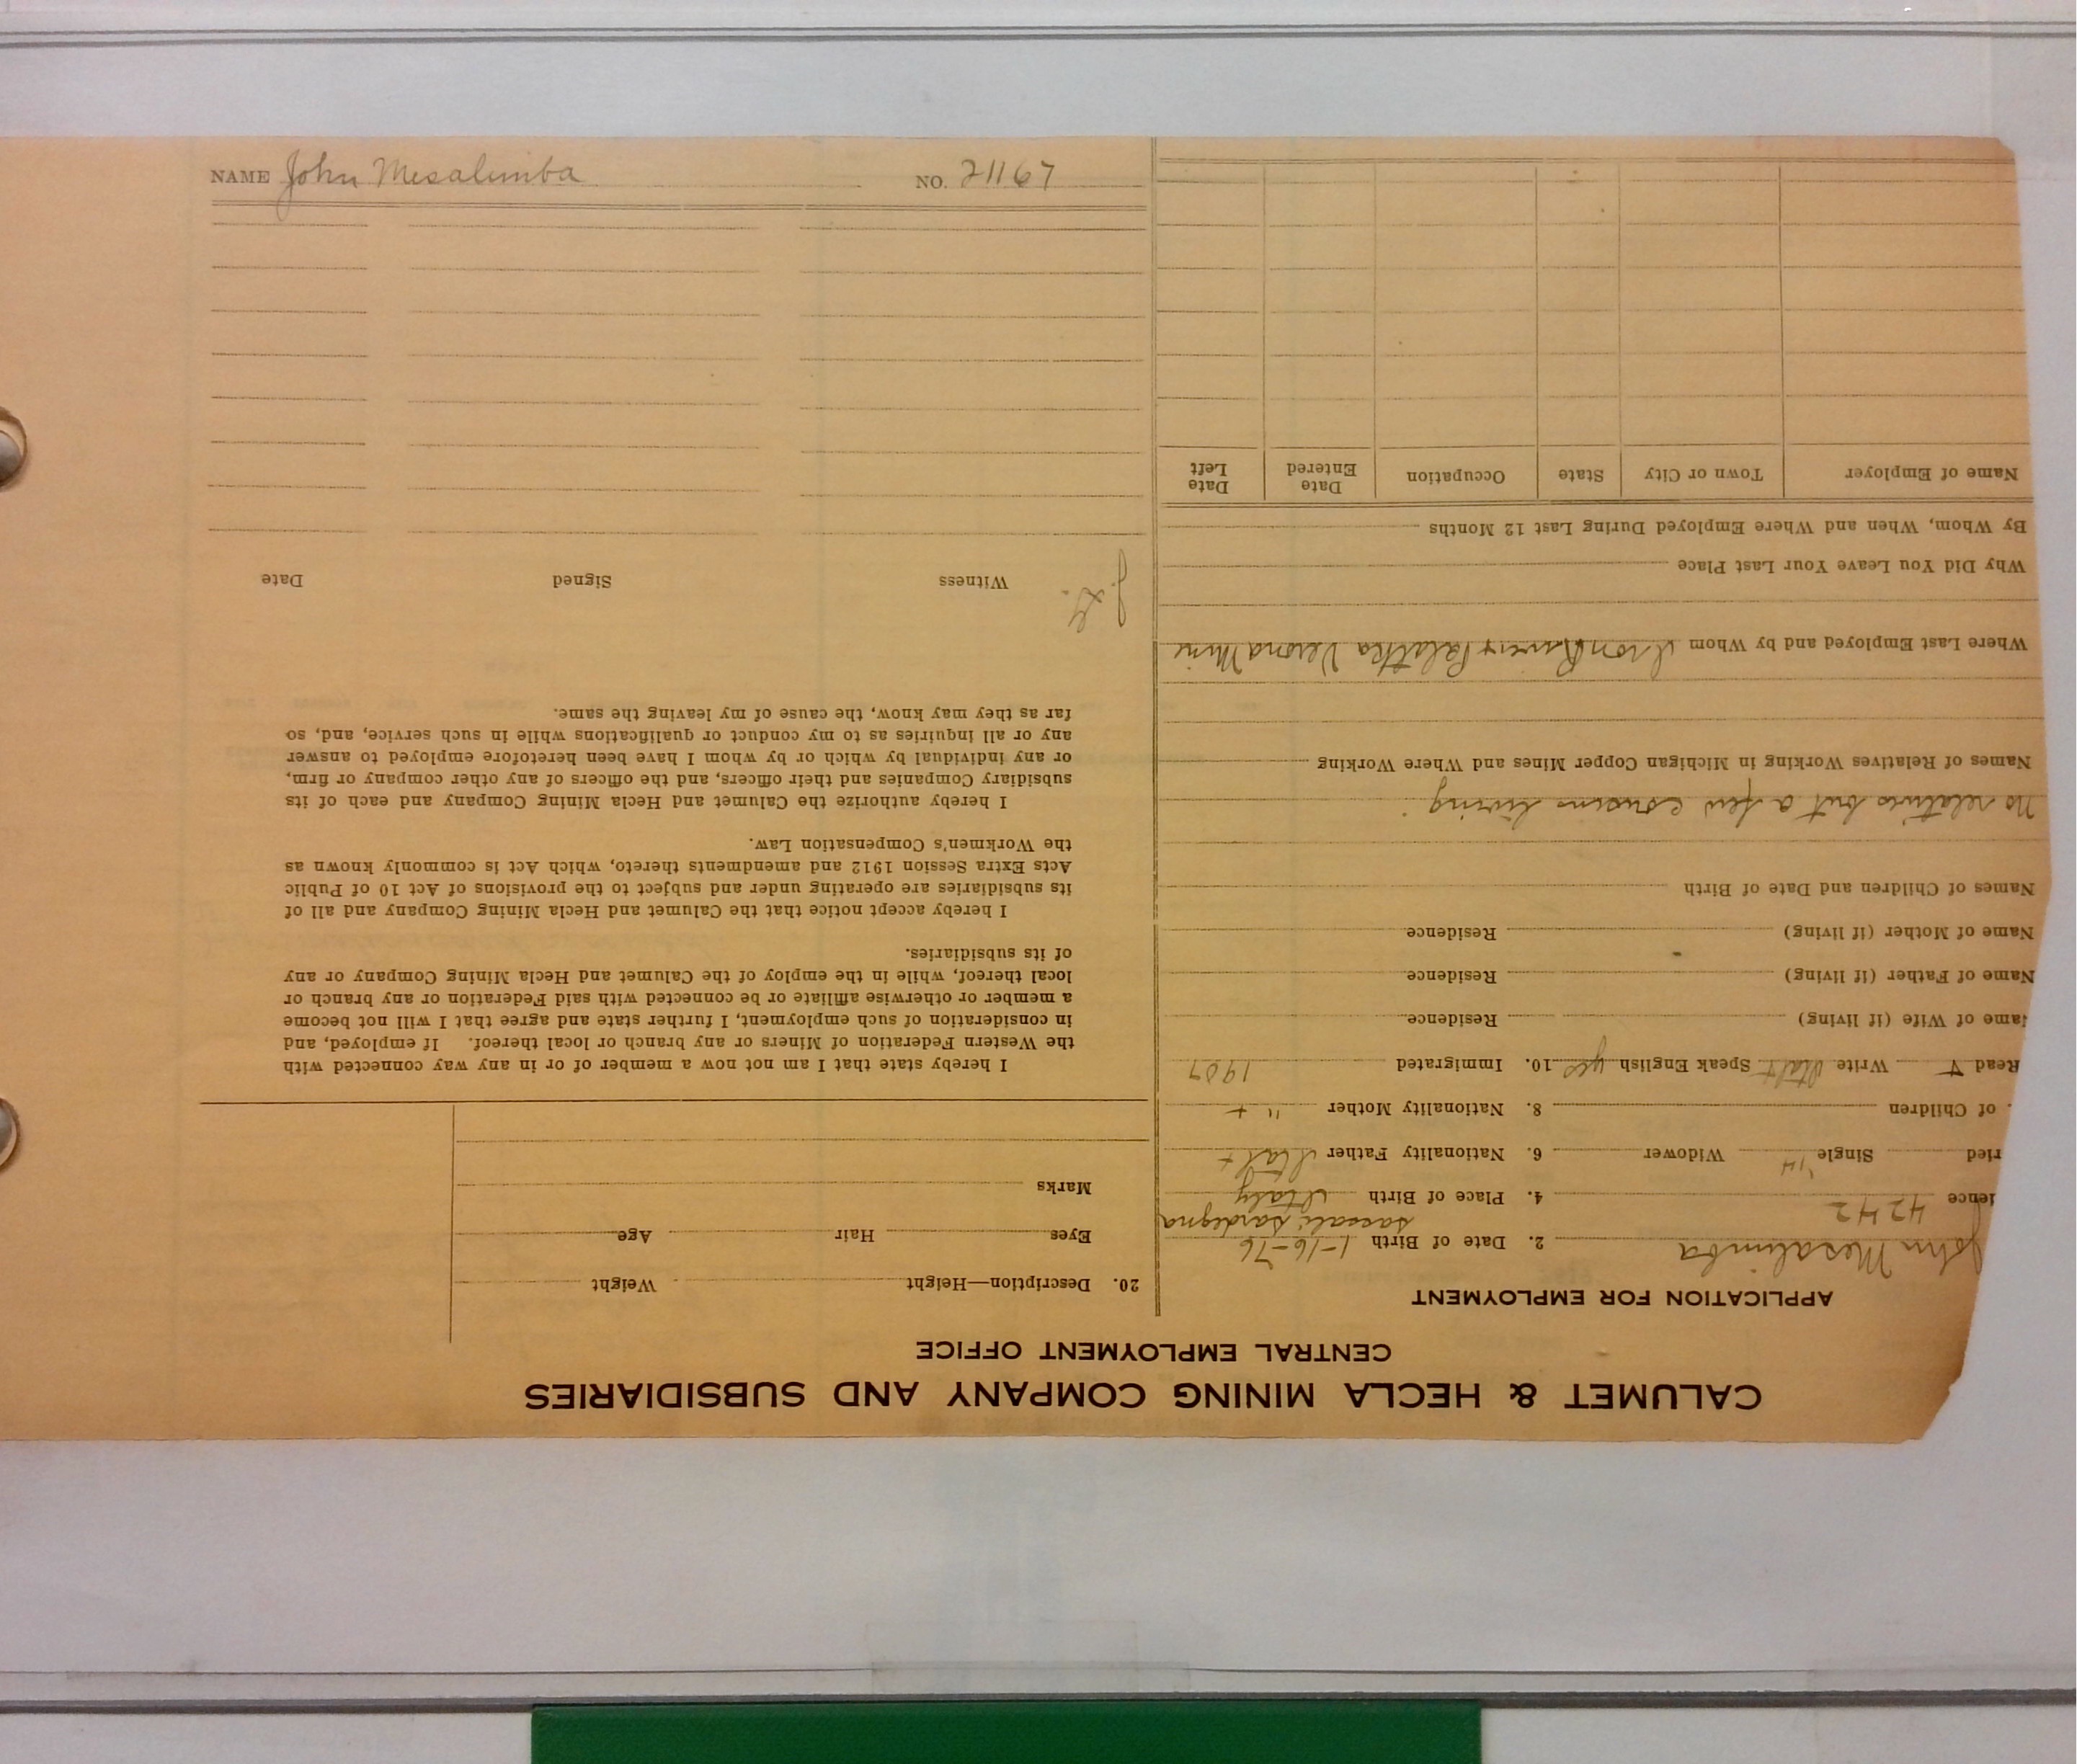 NAME John Mesalimba NO. 21167
CALUMET & HECLA MINING COMPANY AND SUBSIDIARIES
CENTRAL EMPLOYMENT OFFICE
APPLICATION FOR EMPLOYMENT
John Mesalimba 2. Date of Birth 1-16-76
saccali, Sardegna
ience 4242 4. Place of Birth Italy
ried Single '14 Widower 6. Nationality Father Ital +
. of Children 8. Nationality Mother " +
Read + Write Ital + Speak English yes 10. Immigrated 1907
ame of Wife (if living) Residence
Name of Father (if living) Residence
Name of Mother (if living) Residence
Names of Children and Date of Birth
No relatives but a few cousins living
Names of Relatives Working in Michigan Copper Mines and Where Working
Where Last Employed and by Whom Iron River Palatka Verona Mine
Why Did You Leave Your Last Place
By Whom, When and Where Employed During Last 12 Months
Name of Employer Town or City State Occupation Date Entered Date Left
20. Description—Height Weight
Eyes Hair Age
Marks
I hereby state that I am not now a member of or in any way connected with
the Western Federation of Miners or any branch or local thereof. If employed, and
in consideration of such employment, I further state and agree that I will not become
a member or otherwise affiliate or be connected with said Federation or any branch or
local thereof, while in the employ of the Calumet and Hecla Mining Company or any
of its subsidiaries.
I hereby accept notice that the Calumet and Hecla Mining Company and all of
its subsidiaries are operating under and subject to the provisions of Act 10 of Public
Acts Extra Session 1912 and amendments thereto, which Act is commonly known as
the Workmen's Compensation Law.
I hereby authorize the Calumet and Hecla Mining Company and each of its
subsidiary Companies and their officers, and the officers of any other company or firm,
or any individual by which or by whom I have been heretofore employed to answer
any or all inquiries as to my conduct or qualifications while in such service, and, so
far as they may know, the cause of my leaving the same.
Witness Signed Date